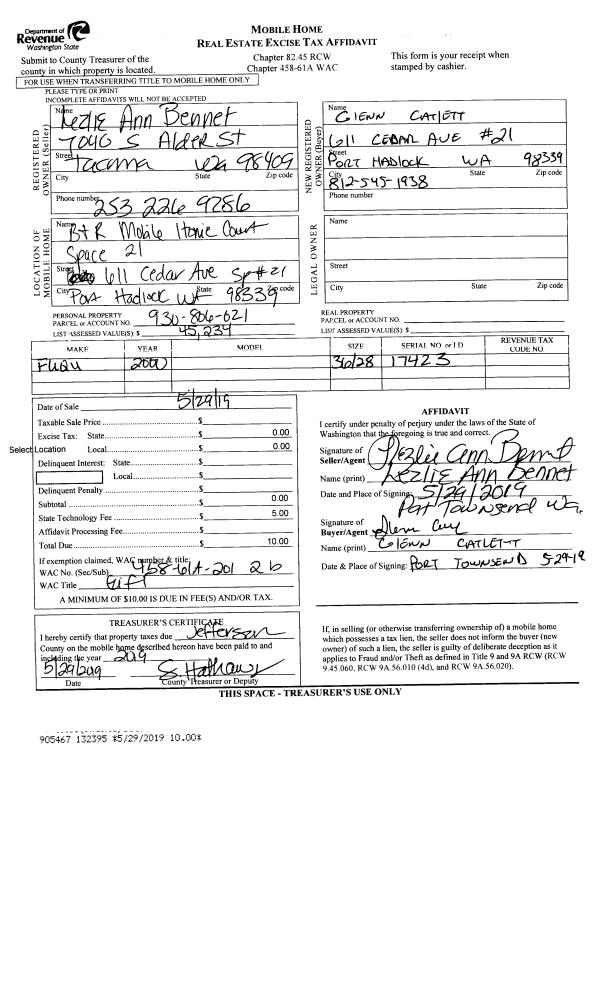 Department of
Revenue
Washington State
MOBILE HOME
REAL ESTATE EXCISE TAX AFFIDAVIT
Submit to County Treasurer of the
county in which property is located.
Chapter 82.45 RCW
Chapter 458-61A WAC
This form is your receipt when
stamped by cashier.
FOR USE WHEN TRANSFERRING TITLE TO MOBILE HOME ONLY
PLEASE TYPE OR PRINT
INCOMPLETE AFFIDAVITS WILL NOT BE ACCEPTED
REGISTERED OWNER (Seller)
Name Lezlie Ann Bennet
7040 S Alder St
Street Tacoma Wa 98409
City State Zip code
Phone number 253 226 9286
NEW REGISTERED OWNER (Buyer)
Name GlENN CATLETT
611 CEDAR AVE #21
Street PORT HADLOCK WA 98339
City State Zip code
812-545-1938
Phone number
LOCATION OF MOBILE HOME
Name B+R Mobile Home Court
Space 21
Street 611 Cedar Ave Sp#21
City Port Hadlock WA State 98339 Zip code
LEGAL OWNER
Name
Street
City State Zip code
PERSONAL PROPERTY
PARCEL or ACCOUNT NO. 930-806-621
LIST ASSESSED VALUE(S): $ 45,234
REAL PROPERTY
PARCEL or ACCOUNT NO.
LIST ASSESSED VALUE(S): $
MAKE YEAR MODEL SIZE SERIAL NO. or I.D. REVENUE TAX CODE NO.
FUQU 2000 36/28 17423
Date of Sale 5/29/19
Taxable Sale Price $
Excise Tax: State $ 0.00
Select Location Local $ 0.00
Delinquent Interest: State $
Local $
Delinquent Penalty $
Subtotal $ 0.00
State Technology Fee $ 5.00
Affidavit Processing Fee $
Total Due $ 10.00
If exemption claimed, WAC number & title:
WAC No. (Sec/Sub) 458-61A-201 2b
WAC Title Gift
A MINIMUM OF $10.00 IS DUE IN FEE(S) AND/OR TAX.
AFFIDAVIT
I certify under penalty of perjury under the laws of the State of
Washington that the foregoing is true and correct.
Signature of
Seller/Agent Lezlie Ann Bennet
Name (print) LEZLIE Ann Bennet
Date and Place of Signing: 5/29/2019
Port Townsend Wa.
Signature of
Buyer/Agent
Name (print) GlENN CATLETT
Date & Place of Signing: PORT TOWNSEND 5-29-19
TREASURER'S CERTIFICATE
I hereby certify that property taxes due Jefferson
County on the mobile home described hereon have been paid to and
including the year 2019
5/29/2019 S. Hathaway
Date County Treasurer or Deputy
If, in selling (or otherwise transferring ownership of) a mobile home
which possesses a tax lien, the seller does not inform the buyer (new
owner) of such a lien, the seller is guilty of deliberate deception as it
applies to Fraud and/or Theft as defined in Title 9 and 9A RCW (RCW
9.45.060, RCW 9A.56.010 (4d), and RCW 9A.56.020).
THIS SPACE - TREASURER'S USE ONLY
905467 132395 *5/29/2019 10.00*